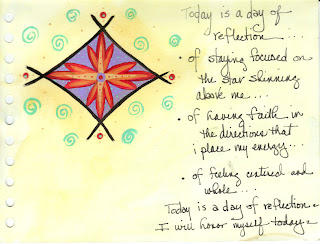 Today is a day of
reflection....
• of staying focused on
the star shinning
above me...
• of having faith in
the directions that
i place my energy...
• of feeling centered and
whole...
Today is a day of reflection.
I will honor myself today.